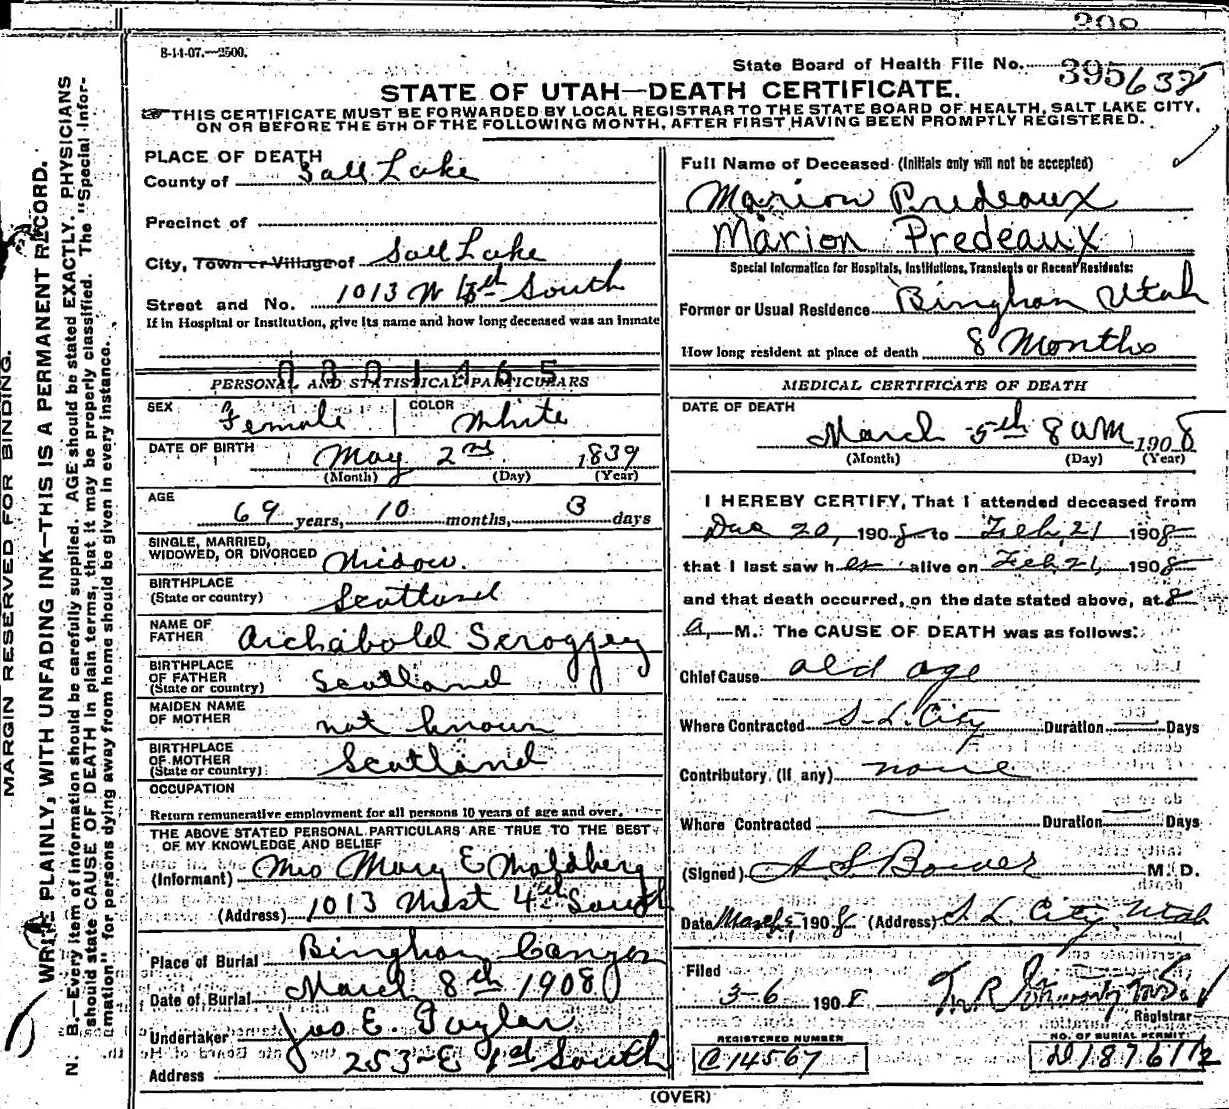 398
8-14-07.—2500.
State Board of Health File No. 395 638
STATE OF UTAH—DEATH CERTIFICATE.
THIS CERTIFICATE MUST BE FORWARDED BY LOCAL REGISTRAR TO THE STATE BOARD OF HEALTH, SALT LAKE CITY,
ON OR BEFORE THE 5TH OF THE FOLLOWING MONTH, AFTER FIRST HAVING BEEN PROMPTLY REGISTERED.
MARGIN RESERVED FOR BINDING.
WRITE PLAINLY, WITH UNFADING INK—THIS IS A PERMANENT RECORD.
N. B.—Every item of information should be carefully supplied. AGE should be stated EXACTLY. PHYSICIANS
should state CAUSE OF DEATH in plain terms, that it may be properly classified. The "Special Infor-
mation" for persons dying away from home should be given in every instance.
PLACE OF DEATH
County of Salt Lake
Precinct of
City, Town or Village of Salt Lake
Street and No. 1013 W 4th South
If in Hospital or Institution, give its name and how long deceased was an inmate
0801465
PERSONAL AND STATISTICAL PARTICULARS
SEX Female COLOR White
DATE OF BIRTH May 2nd 1839
(Month) (Day) (Year)
AGE
69 years, 10 months, 3 days
SINGLE, MARRIED,
WIDOWED, OR DIVORCED Widow.
BIRTHPLACE
(State or country) Scotland
NAME OF
FATHER Archabold Scroggey
BIRTHPLACE
OF FATHER
(State or country) Scotland
MAIDEN NAME
OF MOTHER not known
BIRTHPLACE
OF MOTHER
(State or country) Scotland
OCCUPATION
Return remunerative employment for all persons 10 years of age and over.
THE ABOVE STATED PERSONAL PARTICULARS ARE TRUE TO THE BEST
OF MY KNOWLEDGE AND BELIEF
(Informant) Mrs Mary E Moldberg
(Address) 1013 West 4th South
Place of Burial Bingham Canyon
Date of Burial March 8th 1908
Undertaker Jos E. Taylor
Address 253-E 1st South
Full Name of Deceased (Initials only will not be accepted)
Marion Predeaux
Marion Predeaux
Special Information for Hospitals, Institutions, Transients or Recent Residents:
Former or Usual Residence Bingham Utah
How long resident at place of death 8 Months
MEDICAL CERTIFICATE OF DEATH
DATE OF DEATH
March 5th 8 am 1908
(Month) (Day) (Year)
I HEREBY CERTIFY, That I attended deceased from
Dec 20, 1908 to Feb, 21 1908
that I last saw her alive on Feb, 21, 1908
and that death occurred, on the date stated above, at 8
a, M. The CAUSE OF DEATH was as follows:
Chief Cause old age
Where Contracted S. L. City Duration — Days
Contributory (If any) none
Where Contracted — Duration — Days
(Signed) A S Bower M. D.
Date March 5, 1908 (Address) S. L. City Utah
Filed
3-6 1908 T. R.
Registrar
REGISTERED NUMBER
C 14567
NO. OF BURIAL PERMIT
D 18761 1/2
(OVER)